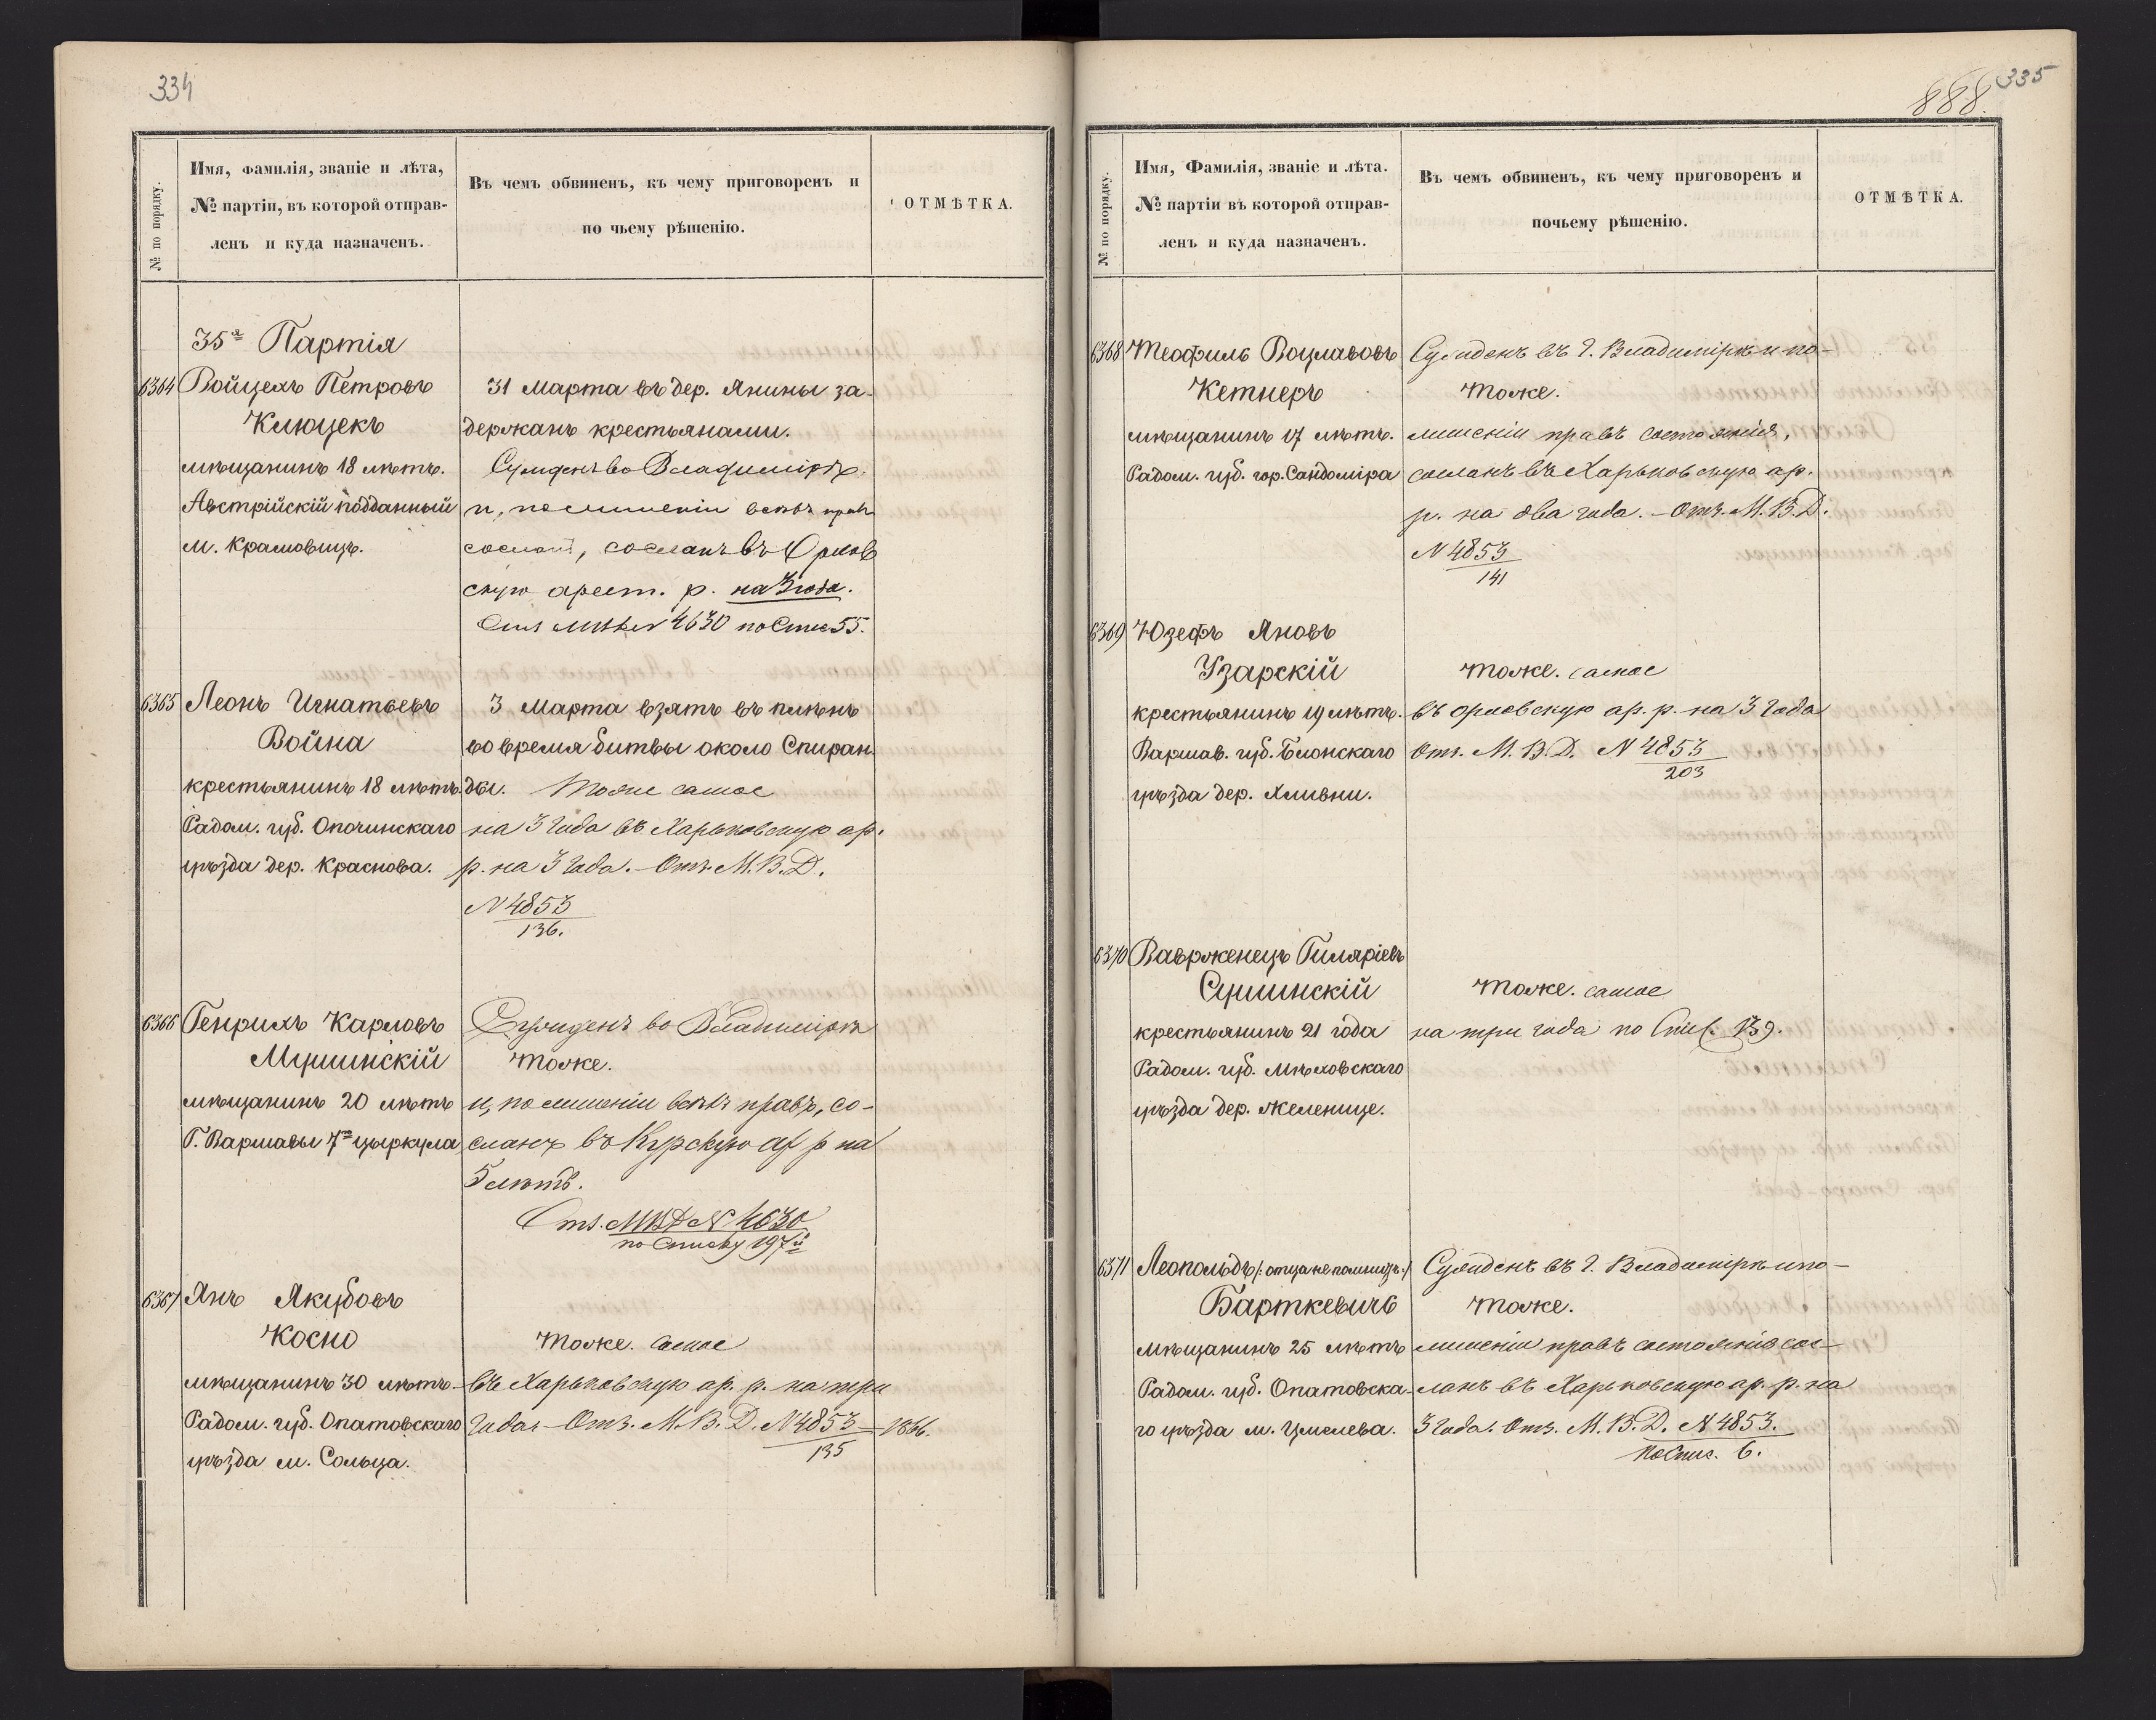 334
№ по порядку.
Имя, фамилія, званіе и лѣта,
№ партіи, въ которой отправ-
ленъ и куда назначенъ.
Въ чемъ обвиненъ, къ чему приговоренъ и
по чьему рѣшенію.
ОТМѢТКА.
35я Партія
6364 Войцехъ Петровъ
Клюцекъ
мѣщанинъ 18 лѣтъ.
Австрійскій подданный
м. Крамовицъ.
31 Марта въ дер. Янины за-
держанъ крестьянами.
Сужденъ во Владимірѣ
и, по лишеніи всѣхъ прав
состоян, сосланъ въ Орлов
скую арест. р. на 3 года.
4630 по Спис 55.
6365 Леонъ Игнатьевъ
Война
крестьянинъ 18 лѣтъ.
Радом. губ. Опочинскаго
уѣзда дер. Краснова.
3 Марта взятъ въ плѣнъ
во время битвы около Спиран-
ды. Тоже самое
на 3 года въ Харьковскую ар.
р. на 3 года. - Отз. М. В. Д.
N 4853
136.
6366 Генрихъ Карловъ
Мушинскій
мѣщанинъ 20 лѣтъ
Г. Варшавы 7го цыркула
Сужденъ во Владимірѣ
тоже.
и, по лишеніи всѣхъ правъ, со-
сланъ въ Курскую ар р на
5 лѣтъ.
Отз. МВД N 4630
по Списку 197й
6367 Янъ Якубовъ
Косно
мѣщанинъ 30 лѣтъ
Радом. губ. Опатовскаго
уѣзда м. Сольца.
тоже. самое
въ Харьковскую ар. р. на три
года - Отз. М. В. Д. N 4853 - 1866.
135
335
888.
№ по порядку.
Имя, Фамилія, званіе и лѣта.
№ партіи въ которой отправ-
ленъ и куда назначенъ.
Въ чемъ обвиненъ, къ чему приговоренъ и
почьему рѣшенію.
ОТМѢТКА.
6368 Теофиль Воцлавовъ
Кетнеръ
мѣщанинъ 17 лѣтъ.
Радом. губ. гор. Сандоміра
Сужденъ въ г. Владимірѣ и по-
тоже.
лишеніи правъ состоянія,
сосланъ въ Харьковскую ар.
р. на два года. - Отз. М. В. Д.
N 4853
141
6369 Юзефъ Яновъ
Узарскій
крестьянинъ 19 лѣтъ.
Варшав. губ. Блонскаго
уѣзда дер. Хливни.
тоже. самое
въ орловскую ар. р. на 3 года
Отз. М. В. Д. N 4853
203
6370 Ваврженецъ Гиляріевъ
Сушинскій
крестьянинъ 21 года
Радом. губ. Мѣховскаго
уѣзда дер. Желенице.
тоже. самое
на три года по Спис. 139.
6371 Леопольдъ /: отца не помнитъ :/
Барткевичъ
мѣщанинъ 25 лѣтъ
Радом. губ. Опатовска-
го уѣзда м. Цмелева.
Сужденъ въ г. Владимірѣ и по-
тоже.
лишеніи правъ состоянія сос-
ланъ въ Харьковскую ар. р. на
3 года. Отз. М. В. Д. N 4853.
по Спис. 6.